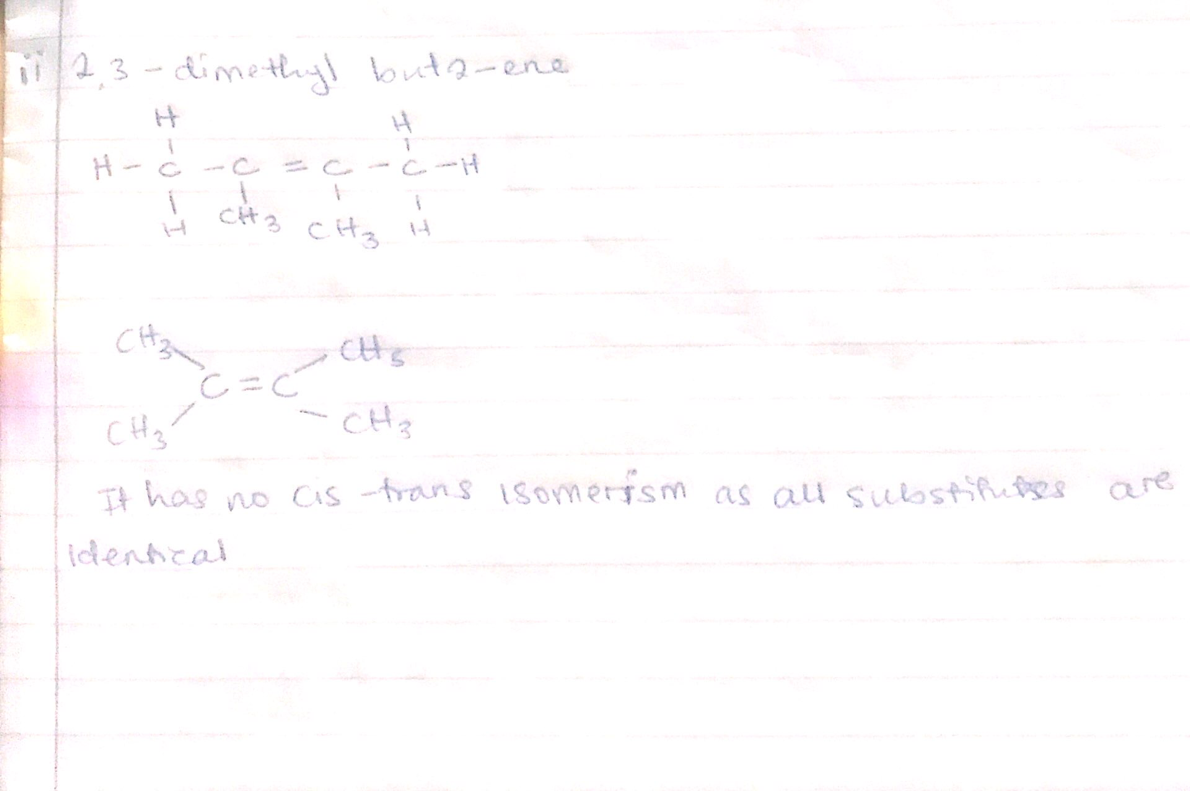 ii 2,3-dimethyl but2-ene
H H
H - C - C = C - C - H
H CH3 CH3 H
CH3 CH3
C = C
CH3 CH3
It has no cis-trans isomerism as all substitutes are
identical